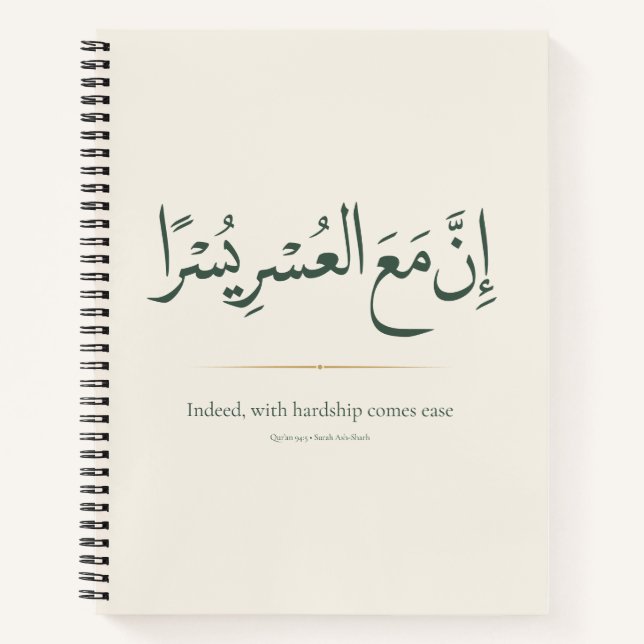 إِنَّ مَعَ العُسْرِ يُسْرًا
Indeed, with hardship comes ease
Qur'an 94:5 • Surah Ash-Sharh